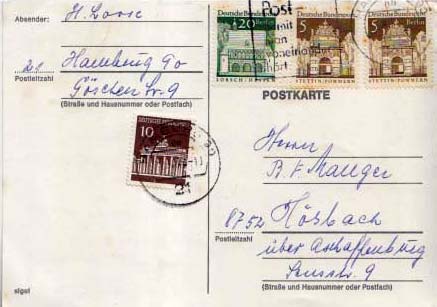 Absender: H. Loose
21 Hamburg 90
Postleitzahl
Göschenstr. 9
(Straße und Hausnummer oder Postfach)
Deutsche Bundespost Berlin
20
LORSCH · HESSEN
Deutsche Bundespost Berlin
5
STETTIN/POMMERN
Deutsche Bundespost Berlin
5
STETTIN/POMMERN
Post
mit
man
voneinander
POSTKARTE
DEUTSCHE BUNDESPOST
10
21
Herrn
B. F. Mauger
8752 Hösbach
Postleitzahl
über Aschaffenburg
9
(Straße und Hausnummer oder Postfach)